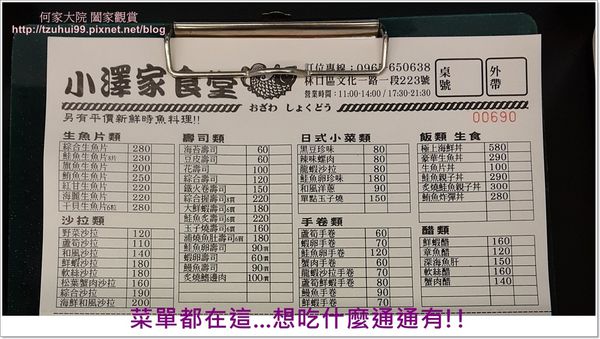 何家大院 闔家觀賞
http://tzuhui99.pixnet.net/blog
小澤家食堂
おざわ しょくどう
訂位專線：096 -650638
林口區文化一路一段223號
營業時間：11:00-14:00 / 17:30-21:30
桌號
外帶
另有平價新鮮時魚料理!!
00690
生魚片類
綜合生魚片 280
鮭魚生魚片5片 230
鮪魚生魚片 250
紅甘生魚片 220
海鸝生魚片 220
干貝生魚片6粒 280
沙拉類
野菜沙拉 120
蘆筍沙拉 110
和風沙拉 140
鮮蝦沙拉 180
軟絲沙拉 180
松葉蟹肉沙拉 160
綜合沙拉 190
海鮮和風沙拉 200
壽司類
海苔壽司 60
豆皮壽司 60
花壽司 100
綜合壽司 120
鐵火卷壽司 150
綜合握壽司6貫 220
大鮮蝦壽司6貫 180
鮭魚炙壽司6貫 220
玉子燒壽司6貫 160
浦燒魚肚壽司6貫 180
鮭魚卵壽司 90貫
蝦卵壽司 60貫
鰻魚壽司 90貫
炙燒鰭邊肉 100貫
日式小菜類
黑豆珍味 80
辣味螺肉 80
龍蝦沙拉 80
鮭魚卵珍味 180
和風洋蔥 90
單點玉子燒 150
手卷類
蘆筍手卷 60
蝦卵手卷 70
鮭魚卵手卷 120
蟹肉手卷 60
龍蝦沙拉手卷 70
蘆筍蝦手卷 80
鰻魚手卷 70
鮮蝦手卷 70
飯類 生食
極上海鮮丼 580
豪華生魚丼 290
生魚片丼 100
鮭魚親子丼 290
炙燒鮭魚親子丼 300
鮪魚炸彈丼 280
醋類
鮮蝦醋 160
章魚醋 120
深海魚肝 150
軟絲醋 160
蟹肉醋 140
菜單都在這...想吃什麼通通有!!